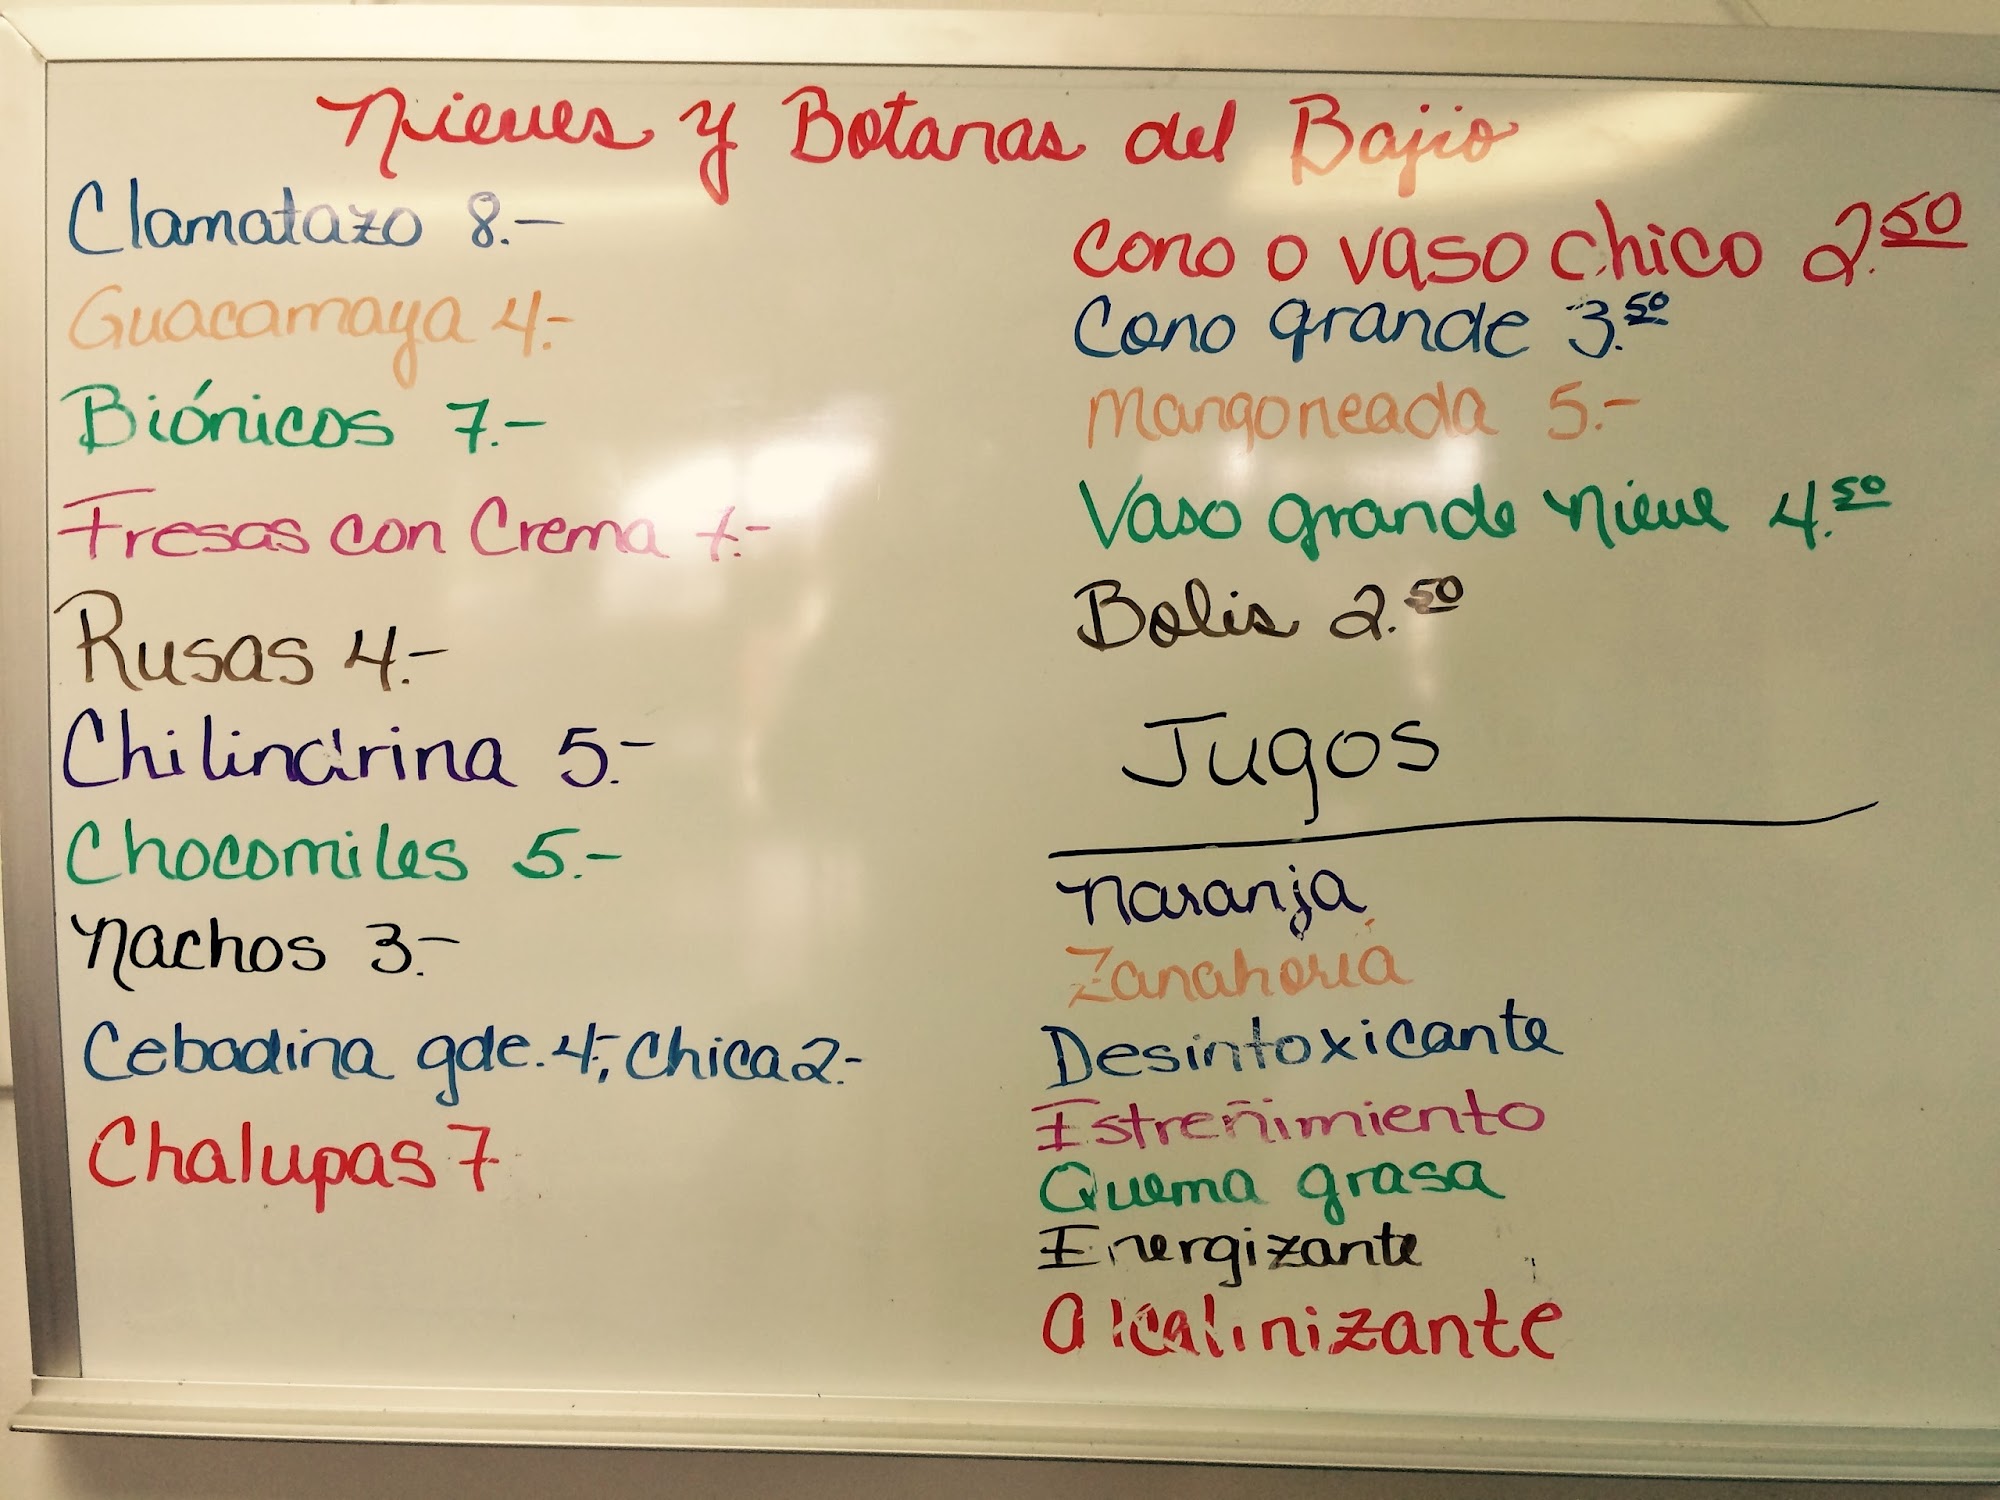 Nieves y Botanas del Bajio
Clamatazo 8.-
Guacamaya 4.-
Biónicos 7.-
Fresas con Crema 7.-
Rusas 4.-
Chilindrina 5.-
Chocomiles 5.-
Nachos 3.-
Cebadina gde. 4.-, Chica 2.-
Chalupas 7
Cono o vaso chico 2.50
Cono grande 3.50
Mangoneada 5.-
Vaso grande nieve 4.50
Bolis 2.50
Jugos
Naranja
Zanahoria
Desintoxicante
Estreñimiento
Quema grasa
Energizante
Alcalinizante